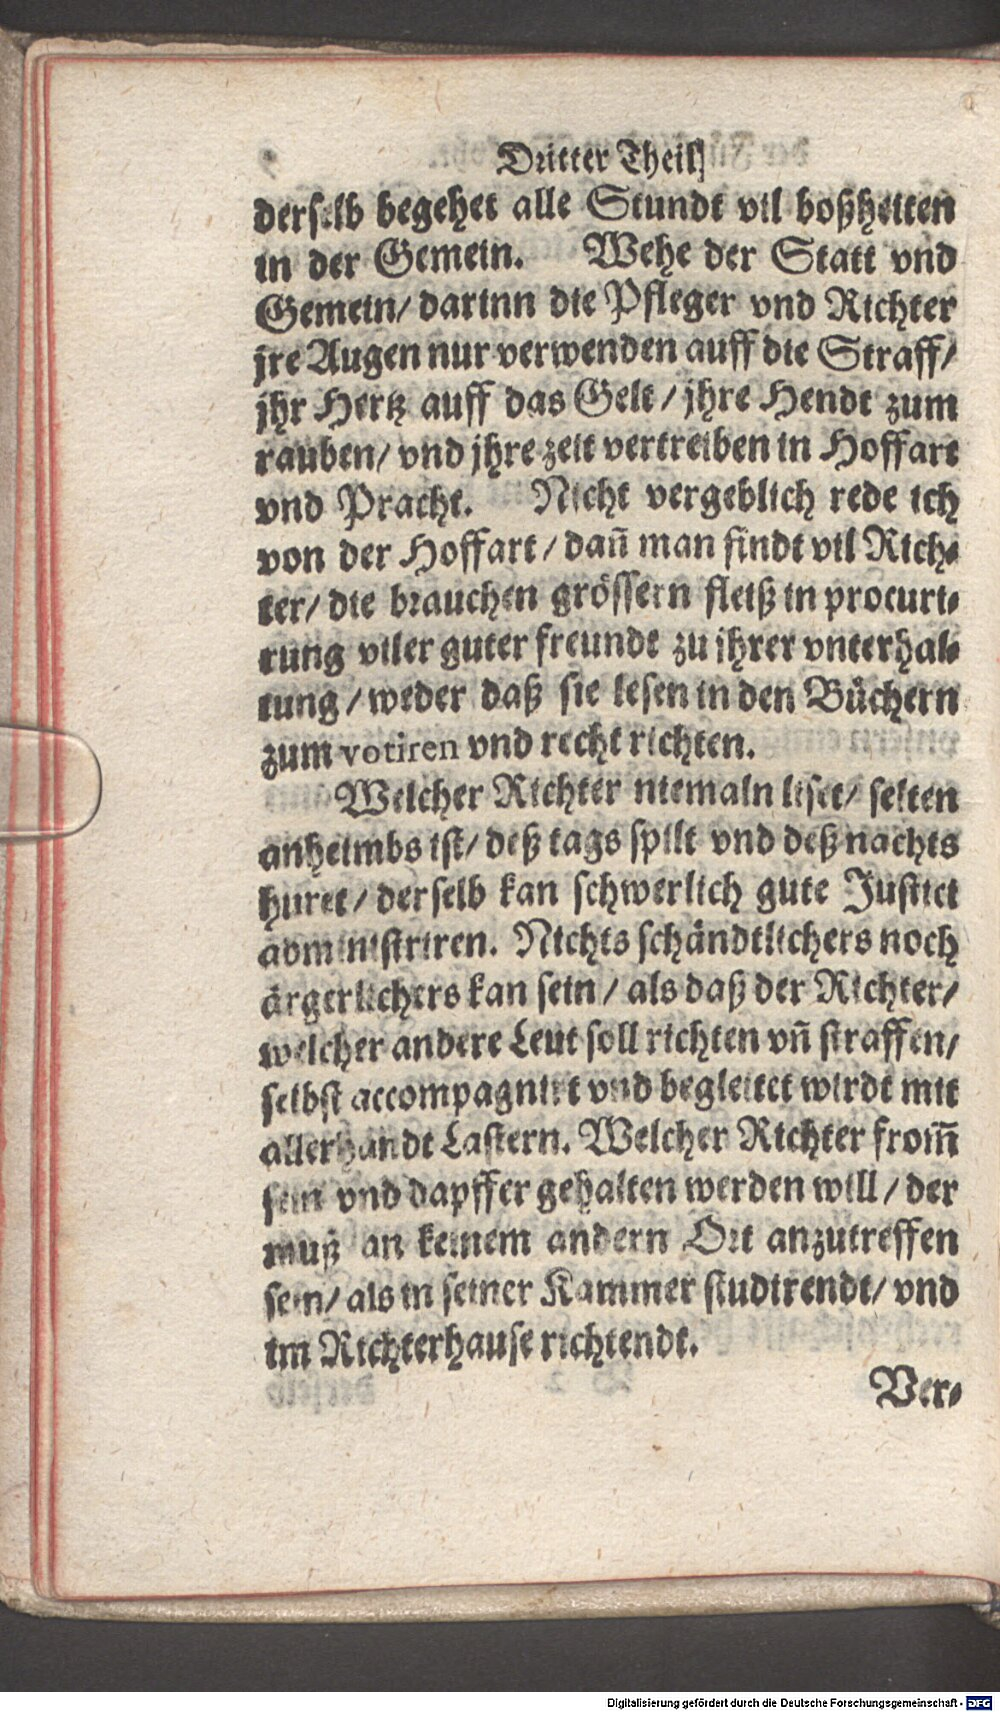 Dritter Theil
derselb begehet alle Stundt vil boßheiten
in der Gemein. Wehe der Statt vnd
Gemein/ darinn die Pfleger vnd Richter
jre Augen nur verwenden auff die Straff/
jhr Hertz auff das Gelt / jhre Hendt zum
rauben/ vnd jhre zeit vertreiben in Hoffart
vnd Pracht. Nicht vergeblich rede ich
von der Hoffart / dañ man findt vil Rich-
ter/ die brauchen grössern fleiß in procuri-
rung viler guter freundt zu jhrer vnterhal-
tung / weder daß sie lesen in den Büchern
zum votiren vnd recht richten.
Welcher Richter niemaln liset/ selten
anheimbs ist/ deß tags spilt vnd deß nachts
huret / derselb kan schwerlich gute Justici
administriren. Nichts schändtlichers noch
ärgerlichers kan sein / als daß der Richter/
welcher andere Leut soll richten vñ straffen/
selbst accompagnirt vnd begleitet wirdt mit
allerhandt Lastern. Welcher Richter from̃
sein vnd dapffer gehalten werden will / der
muß an keinem andern Ort anzutreffen
sein/ als in seiner Kammer studirendt/ vnd
im Richterhause richtendt.
Ver-
Digitalisierung gefördert durch die Deutsche Forschungsgemeinschaft - DFG